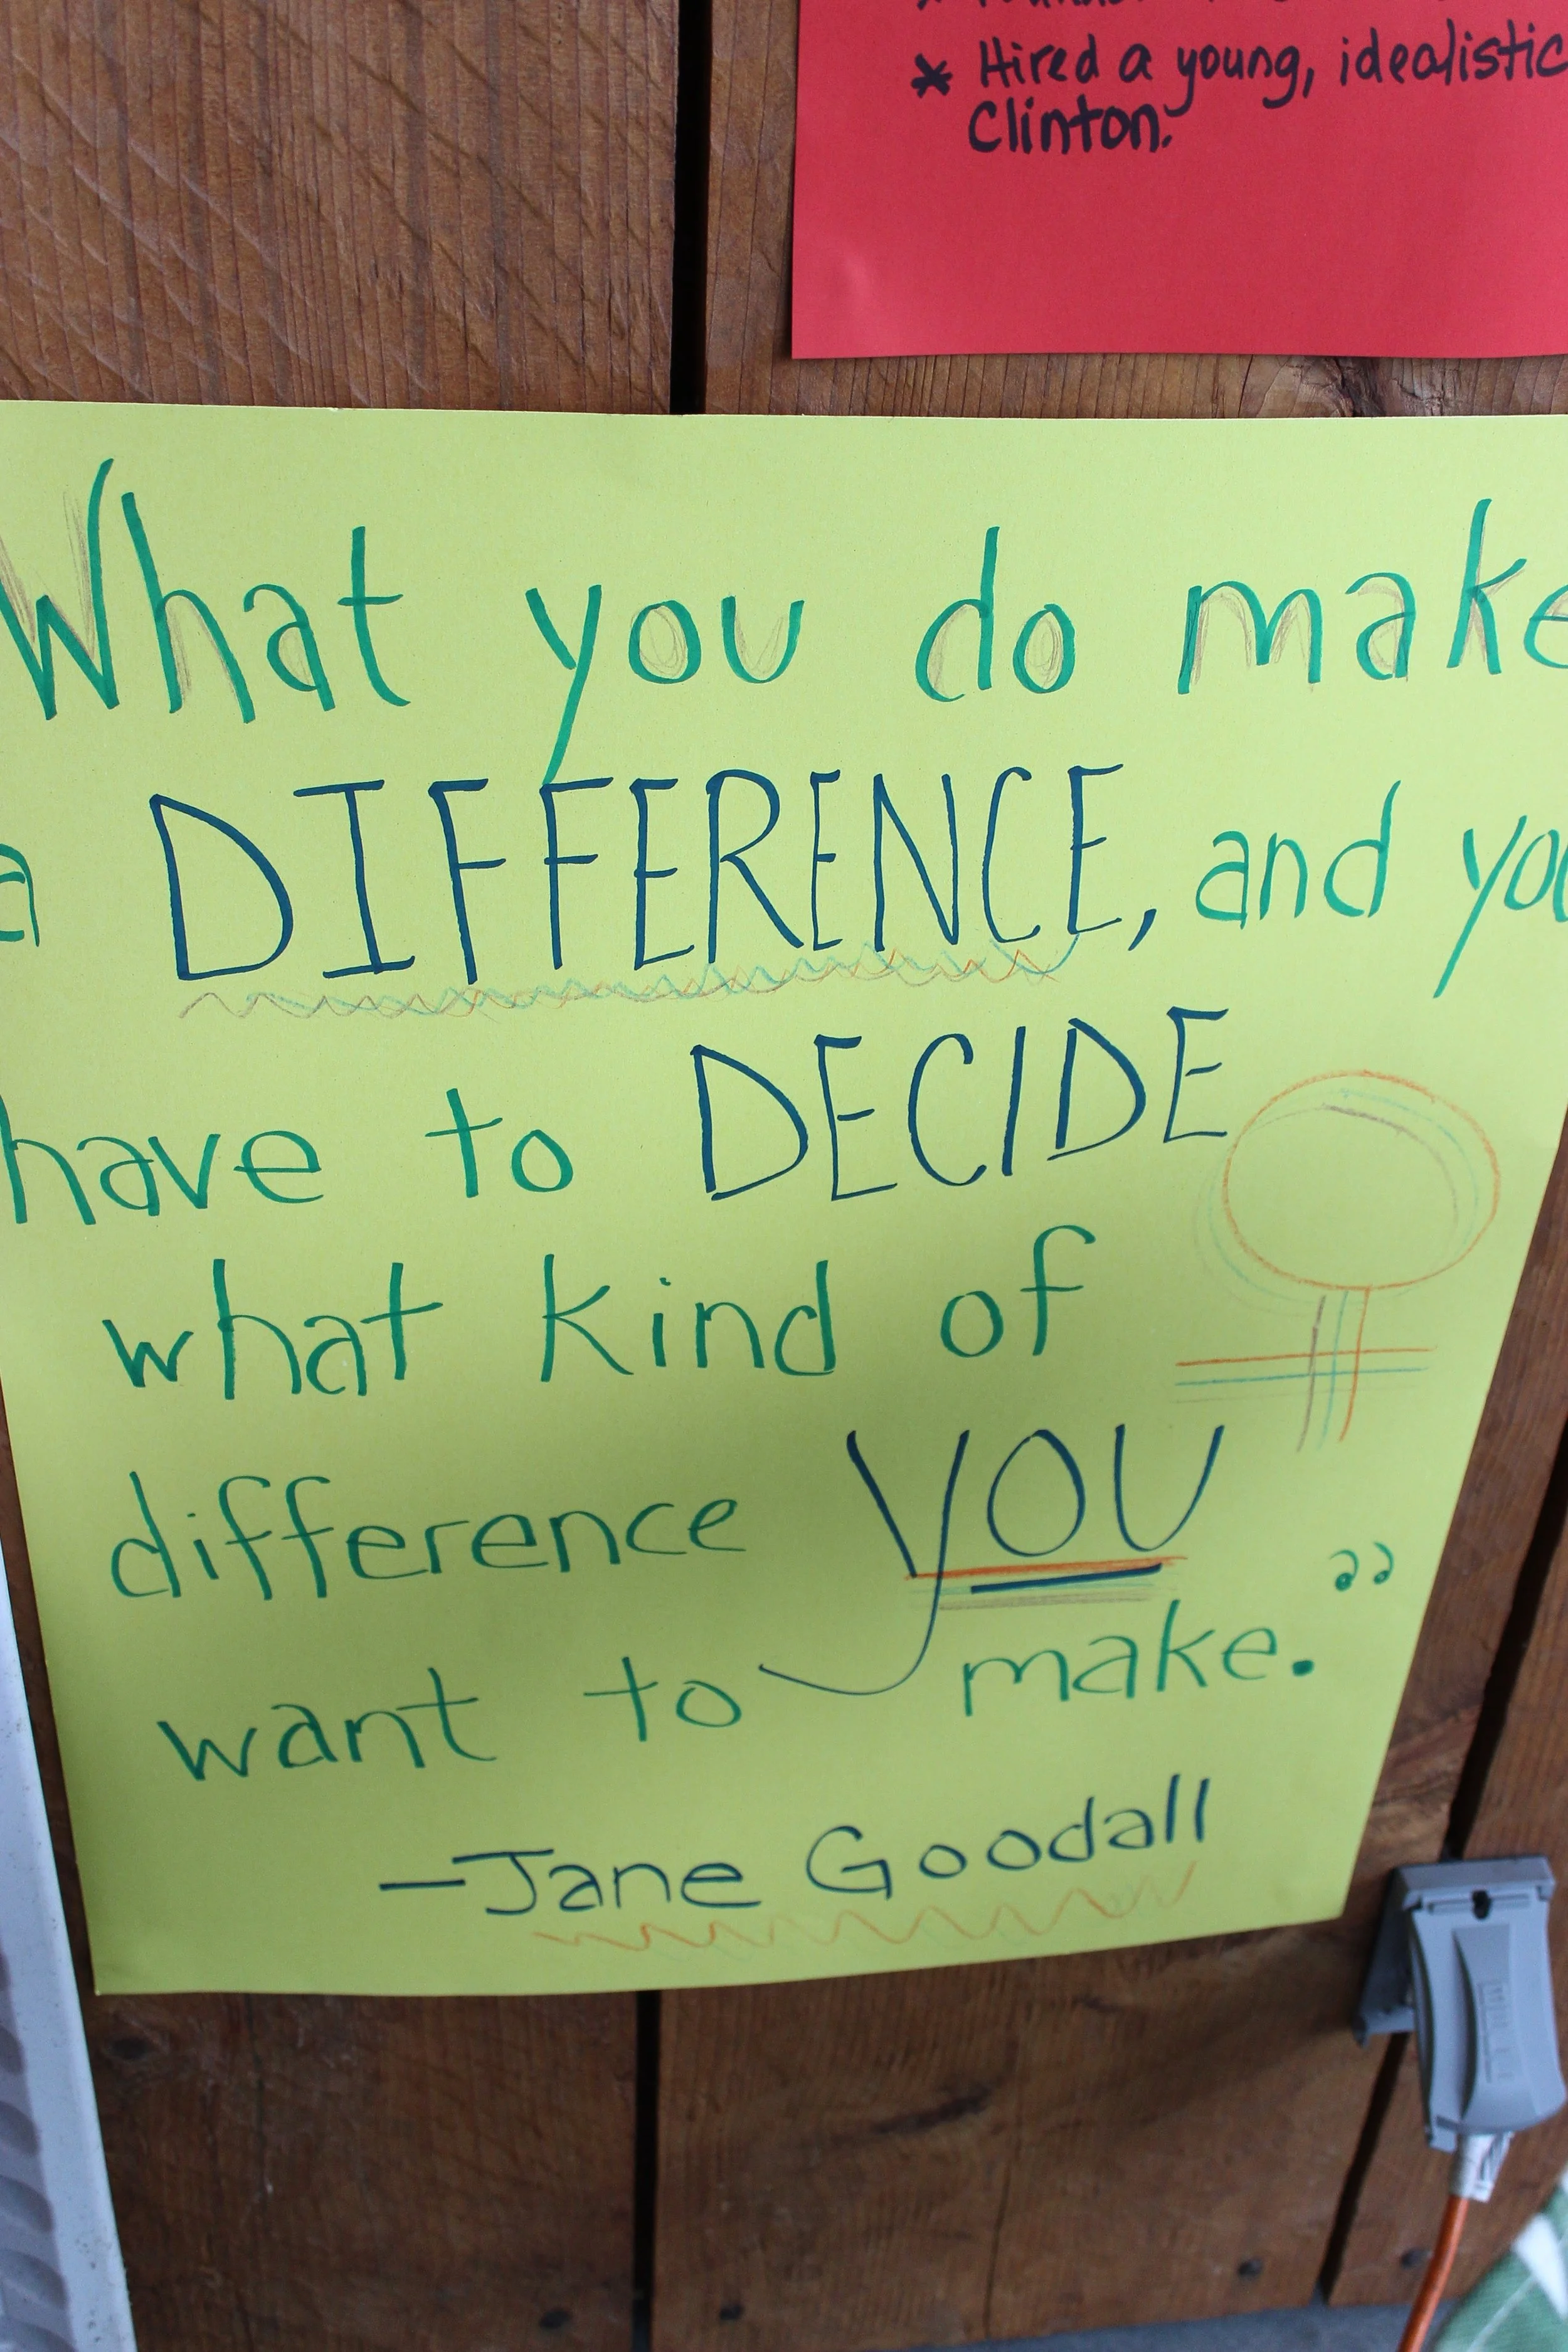 * Hired a young, idealistic
Clinton.
What you do make
a DIFFERENCE, and you
have to DECIDE
what kind of
difference YOU
want to make."
-Jane Goodall